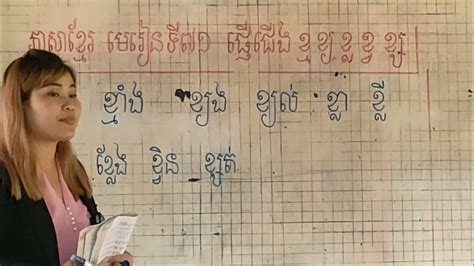 ភាសាខ្មែរ មេរៀនទី៧១ ផ្ញើជើង ខ្ម ខ្យ ខ្ល ខ្វ ខ្ស
ខ្មាំង ខ្យង ខ្យល់ ខ្លា ខ្លី
ខ្លែង ខ្វិន ខ្សត់